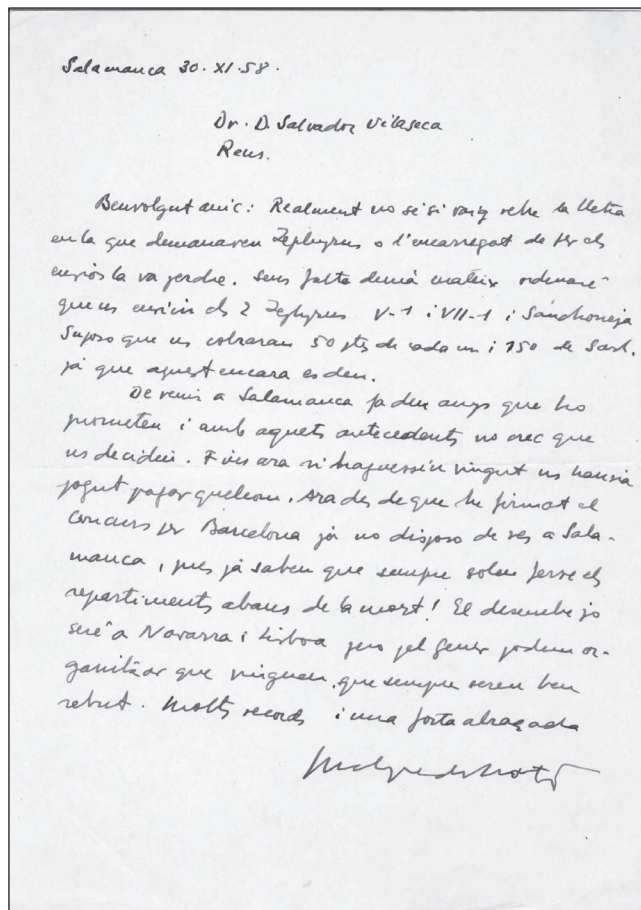 Salamanca 30·XI·58·
Dr. D. Salvador Vilaseca
Reus.
Benvolgut amic: Realment no sé si vaig rebre la lletra
en la que demanaven Zephyrus o l'encarregat de fer els
enviós la va perdre. Sens falta demà mateix ordenaré
que us enviin els 2 Zephyrus V-1 i VII-1 i Sanchorreja
Suposo que us cobraran 50 pts de cada un i 150 de Sanch.
já que aquest encara es den.
De venir a Salamanca fa deu anys que ho
prometeu i amb aquets antecedents no crec que
us decidiu. Fins ara si haguessin vingut us hauria
pogut pagar quelcom. Ara des de que he firmat el
concurs per Barcelona já no disposo de res a Sala-
manca, pues já saben que sempre solen fer-se els
repartiments abans de la mort! El desembre jo
seré a Navarra i Lisboa pero pel Gener podem or-
ganitzar que vinguen, que sempre seren ben
rebut. Molts records i una forta abraçada